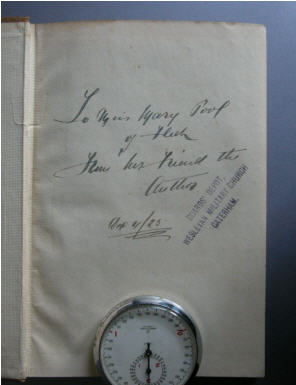 To Miss Mary Pool
of
From his Friend the
Author
GUARDS' DEPOT,
WESLEYAN MILITARY CHURCH
CATERHAM.